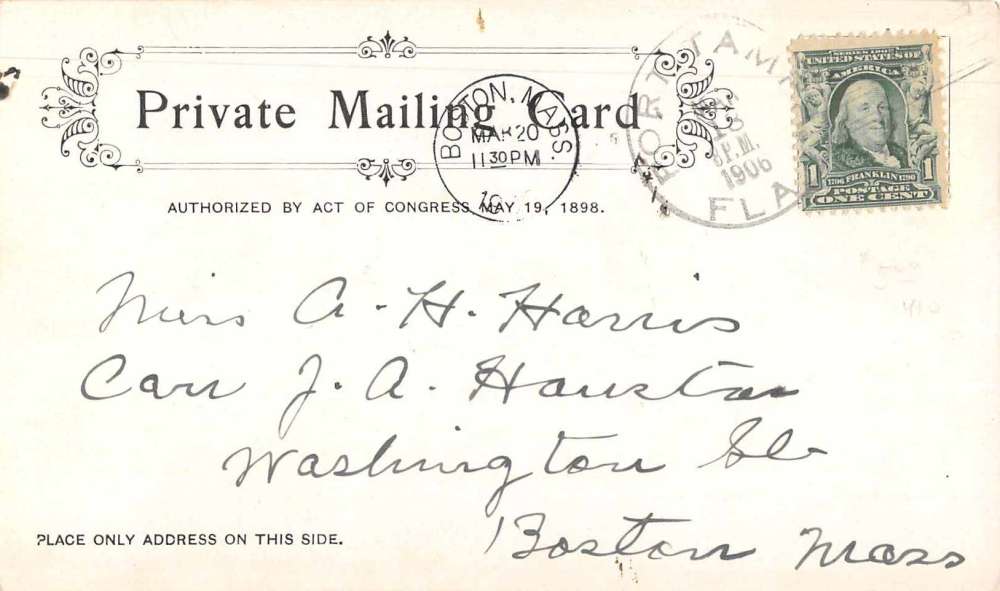 Private Mailing Card
AUTHORIZED BY ACT OF CONGRESS MAY 19, 1898.
BOSTON, MASS.
MAR 20
11 30 PM
PORT TAMPA
18
P.M.
1906
FLA
SERIES 1902
UNITED STATES OF
AMERICA
1706 FRANKLIN 1790
POSTAGE
1 ONE CENT 1
Miss A. H. Harris
Care J. A. Houston
Washington St.
Boston Mass
PLACE ONLY ADDRESS ON THIS SIDE.